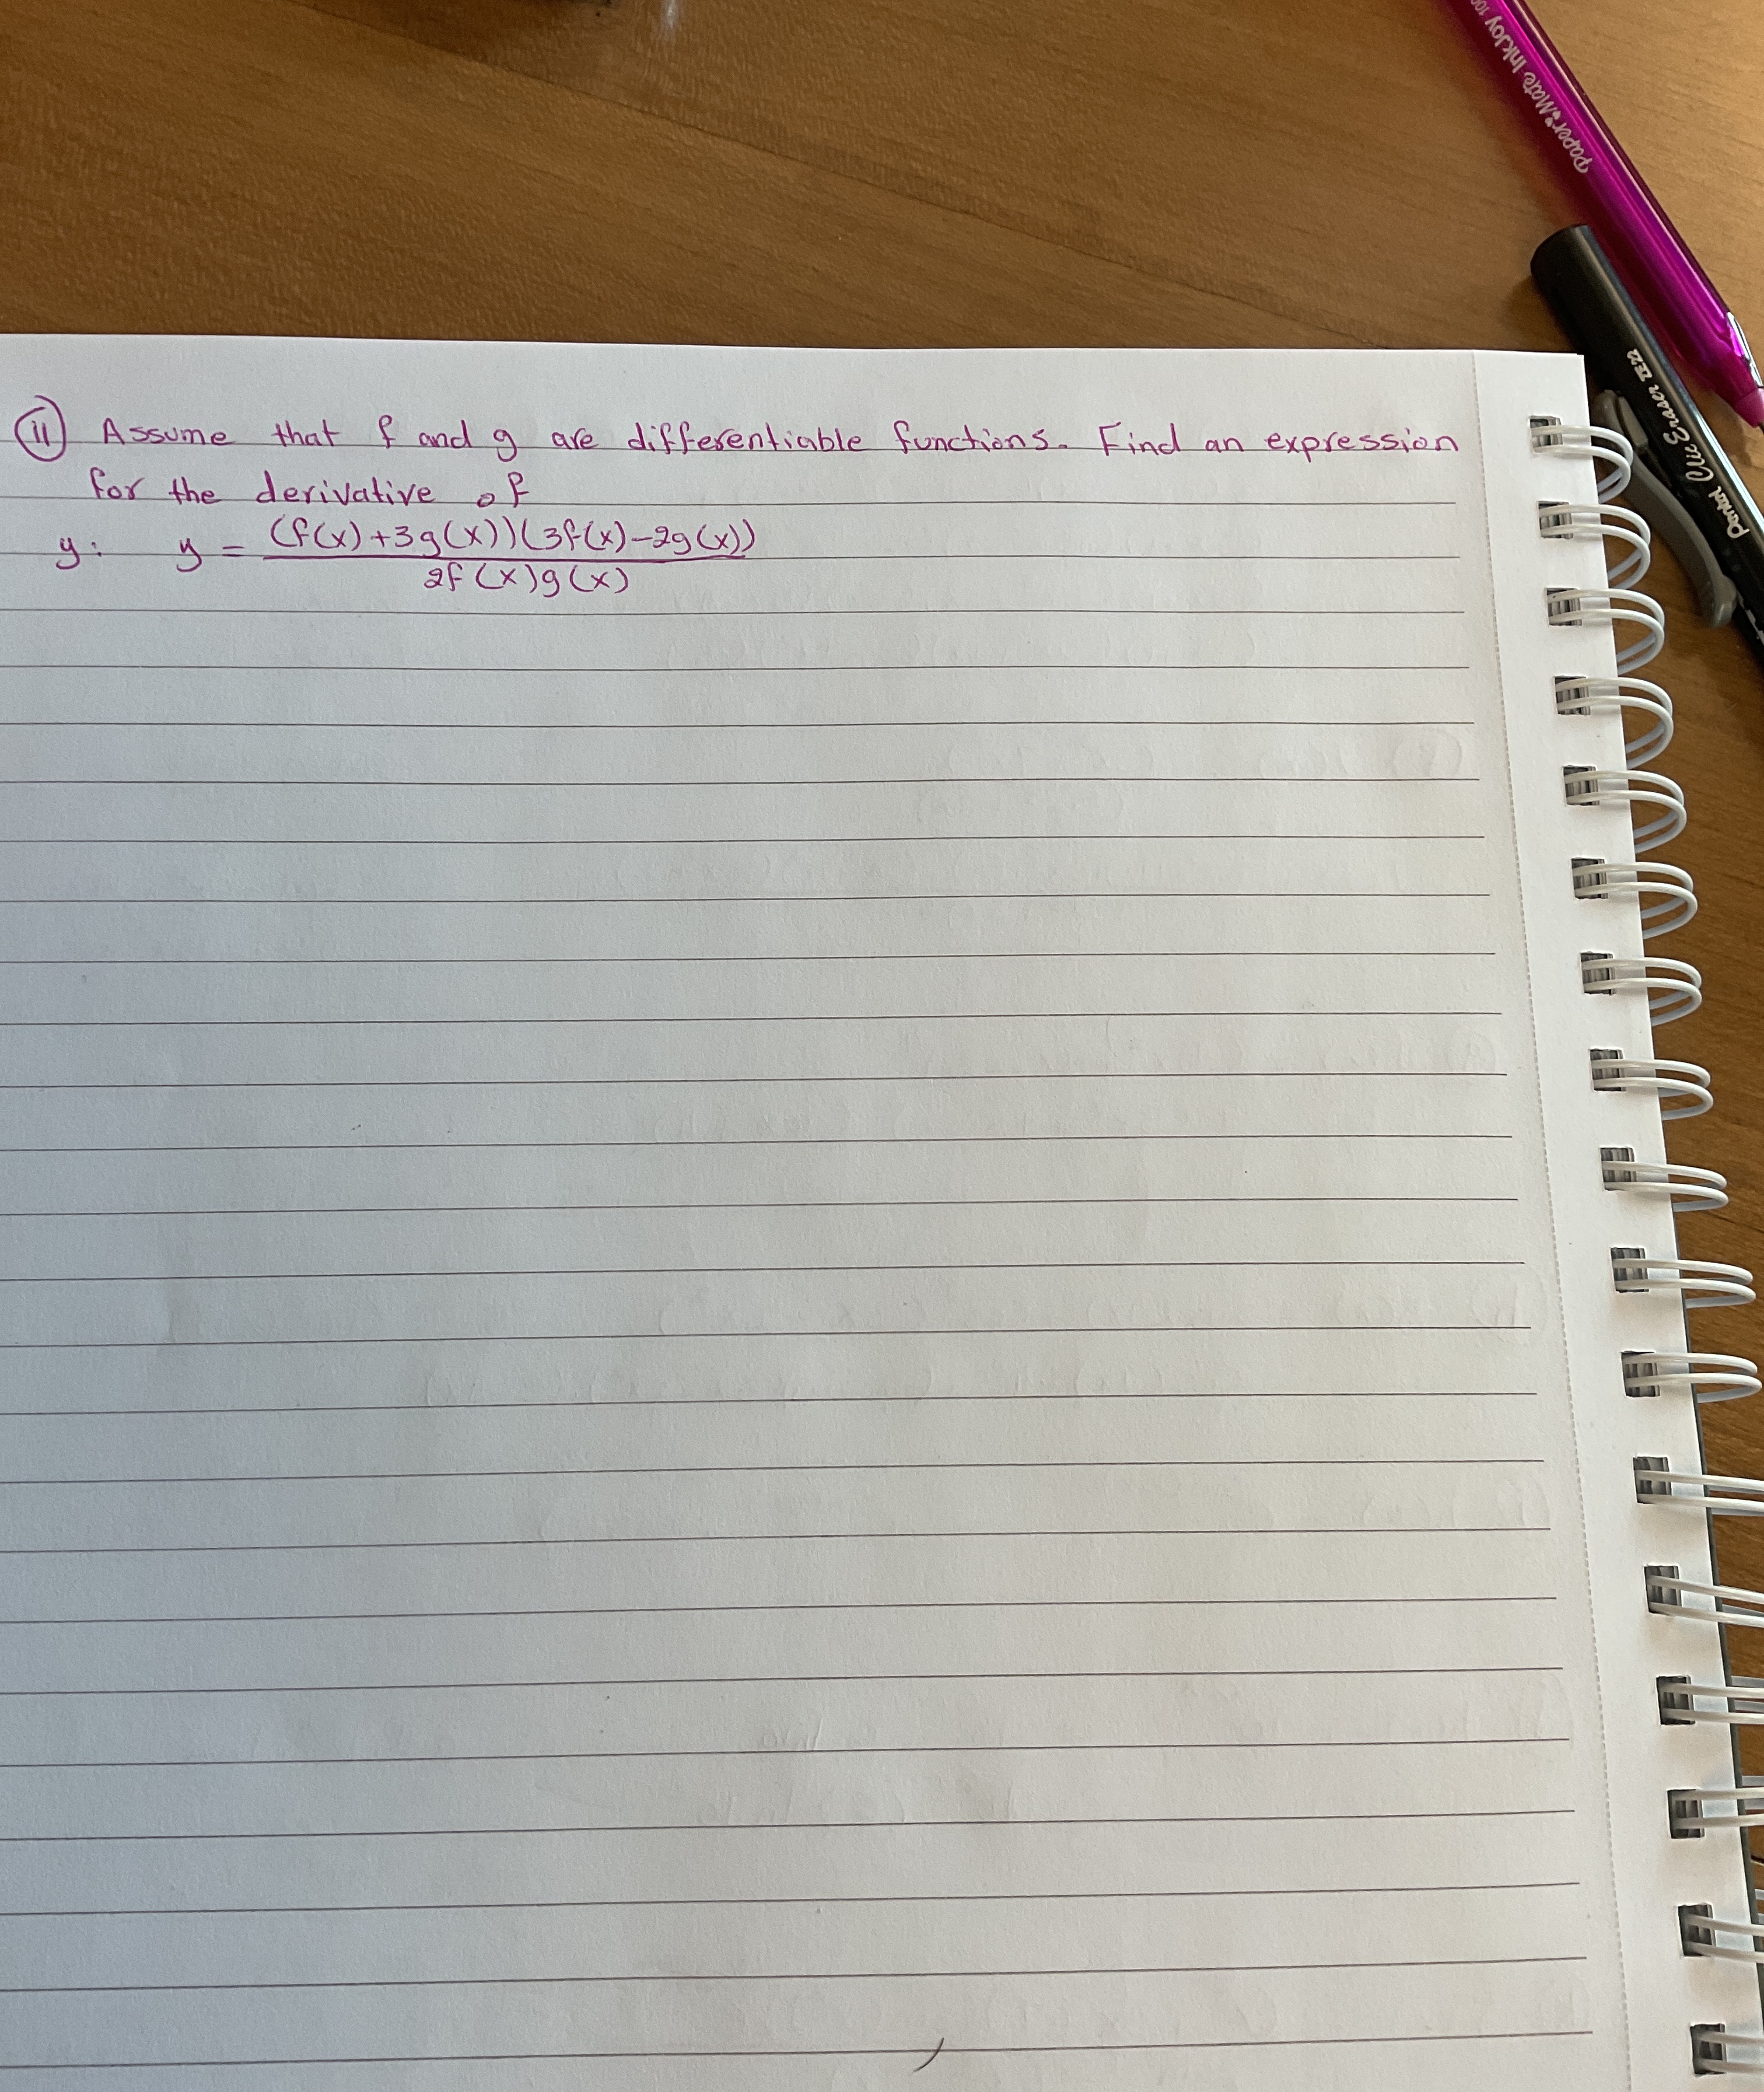 Paper Mate InkJoy 100
Pentel Clic Eraser ZE22
11 Assume that f and g are differentiable functions. Find an expression
for the derivative of
y: y = (f(x)+3g(x))(3f(x)-2g(x))
2f(x)g(x)